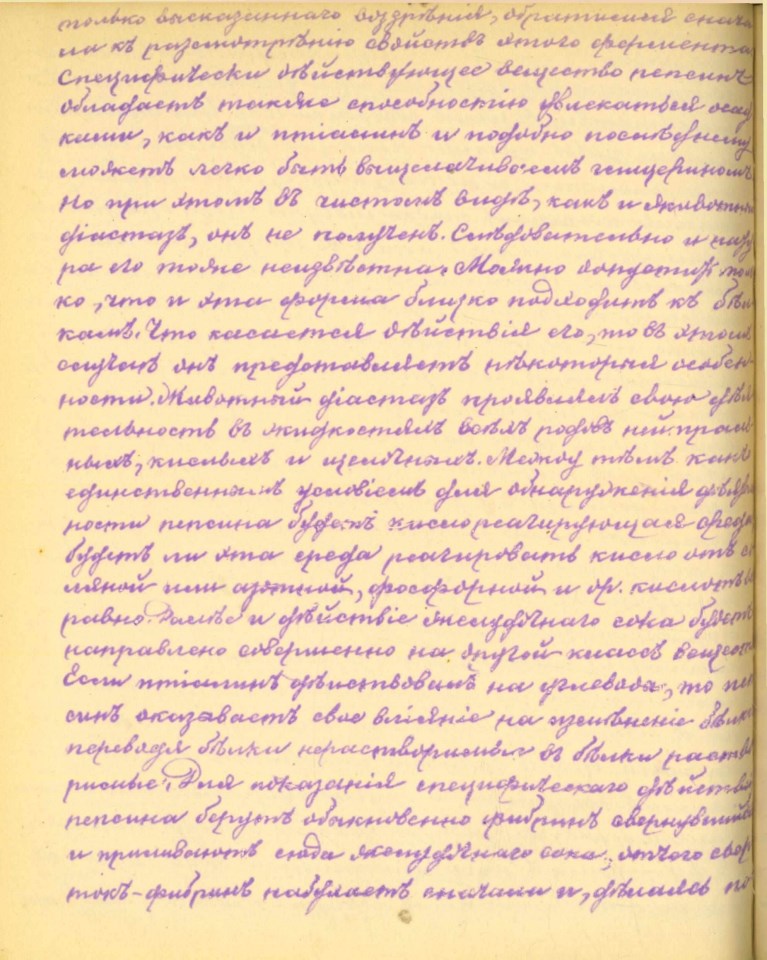 только высказаннаго воззрѣнія, обратимся снача
ла къ разсмотрѣнію свойствъ этого фермента
Специфически дѣйствующее вещество пепсинъ
обладаетъ также способностію увлекаться осад
ками, какъ и птіалинъ и подобно послѣднему
можетъ легко быть выщелачиваемъ глицериномъ.
Но при этомъ въ чистомъ видѣ, какъ и животный
діастазъ, онъ не полученъ. Слѣдовательно и нату
ра его тоже неизвѣстна. Можно допустить толь
ко, что и эта форма близко подходитъ къ бѣл
камъ. Что касается дѣйствія его, то въ этомъ
случаѣ онъ представляетъ нѣкоторыя особен
ности. Животный діастазъ проявлялъ свою дѣя
тельность въ жидкостяхъ всѣхъ родовъ нейтраль
ныхъ, кислыхъ и щелочныхъ. Между тѣмъ какъ
единственнымъ условіемъ для обнаруженія дѣятель
ности пепсина будетъ кисло реагирующая среда
будетъ ли эта среда реагировать кисло отъ со
ляной или азотной, фосфорной и др. кислотъ все
равно. Далѣе и дѣйствіе желудочнаго сока будетъ
направлено совершенно на другой классъ веществъ
Если птіалинъ дѣйствовалъ на углеводы, то пеп
синъ оказываетъ свое вліяніе на измѣненіе бѣлковъ
переводя бѣлки нерастворимые въ бѣлки раство
римые. Для показанія специфическаго дѣйствія
пепсина берутъ обыкновенно фибринъ свернувшійся
и приливаютъ сюда желудочнаго сока, отчего свер
токъ-фибринъ набухаетъ сначала и, дѣлаясь по